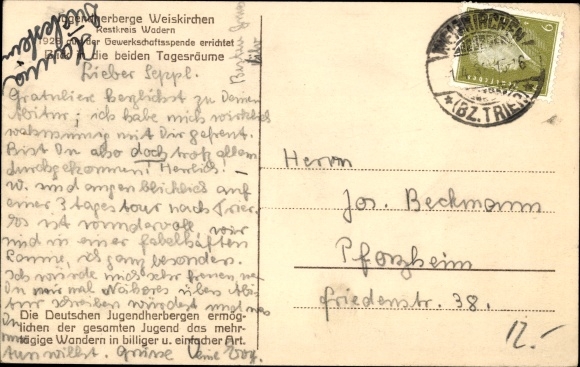 Jugendherberge Weiskirchen
Restkreis Wadern
1929 aus der Gewerkschaftsspende errichtet
Blick in die beiden Tagesräume
Lieber Seppl.
Gratuliere herzlichst zu Deinem
Abitur; ich habe mich wirklich
wahnsinnig mit Dir gefreut.
Bist Du also doch trotz allem
durchgekommen! Herrlich! —
W. sind augenblicklich auf
einer 3 tages tour nach Trier.
Es ist wundervoll wir
sind in einer fabelhaften
Laune, ich ganz besonders.
Ich würde mich sehr freuen, wenn
Du mir mal Näheres über Abi-
tur schreiben würdest und was
Du nun
Die Deutschen Jugendherbergen ermög-
lichen der gesamten Jugend das mehr-
tägige Wandern in billiger u. einfacher Art.
tun willst. Grüsse Deine
WEISKIRCHEN
(BZ. TRIER)
6
Herrn
Jos. Beckmann
Pforzheim
Friedenstr. 38.
12.-